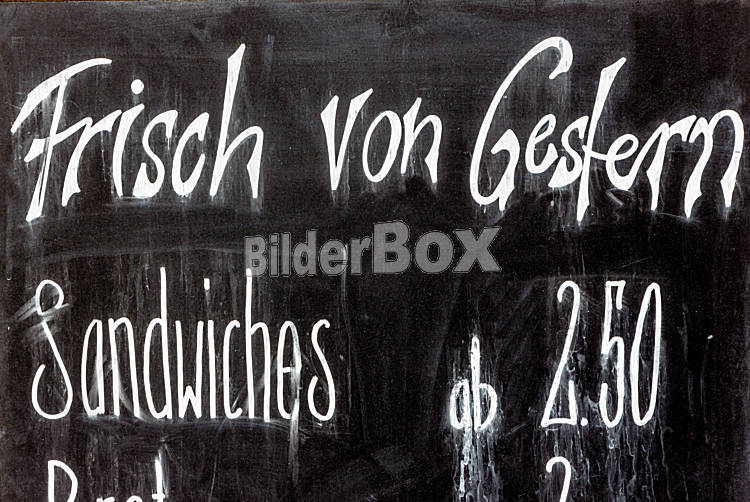 Frisch von Gestern
BilderBox
Sandwiches ab 2.50